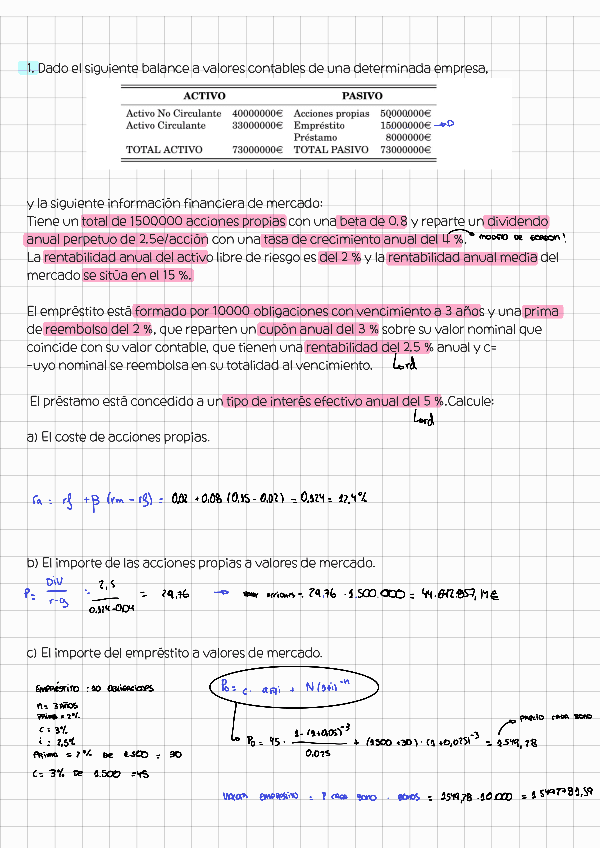 1. Dado el siguiente balance a valores contables de una determinada empresa,
ACTIVO PASIVO
Activo No Circulante 40000000€ Acciones propias 50000000€
Activo Circulante 33000000€ Empréstito 15000000€ → D
Préstamo 8000000€
TOTAL ACTIVO 73000000€ TOTAL PASIVO 73000000€
y la siguiente información financiera de mercado:
Tiene un total de 1500000 acciones propias con una beta de 0.8 y reparte un dividendo
anual perpetuo de 2.5e/acción con una tasa de crecimiento anual del 4 %. → MODELO DE GORDON!
La rentabilidad anual del activo libre de riesgo es del 2 % y la rentabilidad anual media del
mercado se sitúa en el 15 %.
El empréstito está formado por 10000 obligaciones con vencimiento a 3 años y una prima
de reembolso del 2 %, que reparten un cupón anual del 3 % sobre su valor nominal que
coincide con su valor contable, que tienen una rentabilidad del 2.5 % anual y c=
-uyo nominal se reembolsa en su totalidad al vencimiento. rd
El préstamo está concedido a un tipo de interés efectivo anual del 5 %.Calcule:
rd
a) El coste de acciones propias.
ra = rf + β (rm - rf) = 0,02 + 0,08 (0,15 - 0,02) = 0,124 = 12,4%
b) El importe de las acciones propias a valores de mercado.
P = DIV / r-g = 2,5 / 0,124-0,04 = 29,76 → acciones = 29,76 · 1.500.000 = 44.642.857,14€
c) El importe del empréstito a valores de mercado.
EMPRÉSTITO: 10 OBLIGACIONES
P0 = c · an¬i + N (1+i)^-n
n = 3 AÑOS
PRIMA = 2%
C = 3%
i = 2,5%
PRIMA = 2% DE 1.500 = 30
C = 3% DE 1.500 = 45
P0 = 45 · 1-(1+0,05)^-3 / 0,025 + (1500 + 30) · (1+0,025)^-3 = 1.549,78
PRECIO CADA BONO
VALOR EMPRÉSTITO = P CADA BONO · BONOS = 1549,78 · 10.000 = 15497781,39